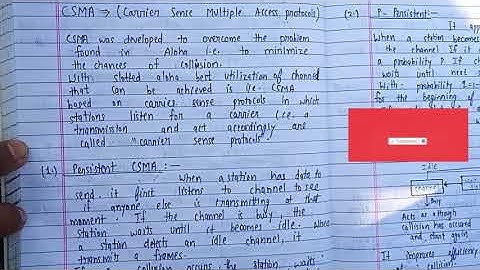 CSMA → (Carrier Sense Multiple Access protocols)
CSMA was developed to overcome the problem
found in Aloha i.e. to minimize
the chances of collision.
With slotted aloha best utilization of channel
that can be achieved is 1/e. CSMA
based on carrier sense protocols in which
stations listen for a carrier i.e. a
transmission and act accordingly are
called "carrier sense protocols"
(1.) Persistent CSMA :—
When a station has data to
send, it first listens to channel to see
if anyone else is transmitting at that
moment. If the channel is busy, the
station waits until it becomes idle. When
a station detects an idle channel, it
transmits a frames.
collision occurs, the station waits
(2.) P- Persistent:—
It app
When a station becomes
the channel If it
a probability P. If ch
waits until next s
With probability q=1-
for the beginning of
Idle
channel
Busy
Acts as though
collision has occured
and start again
It improves efficiency